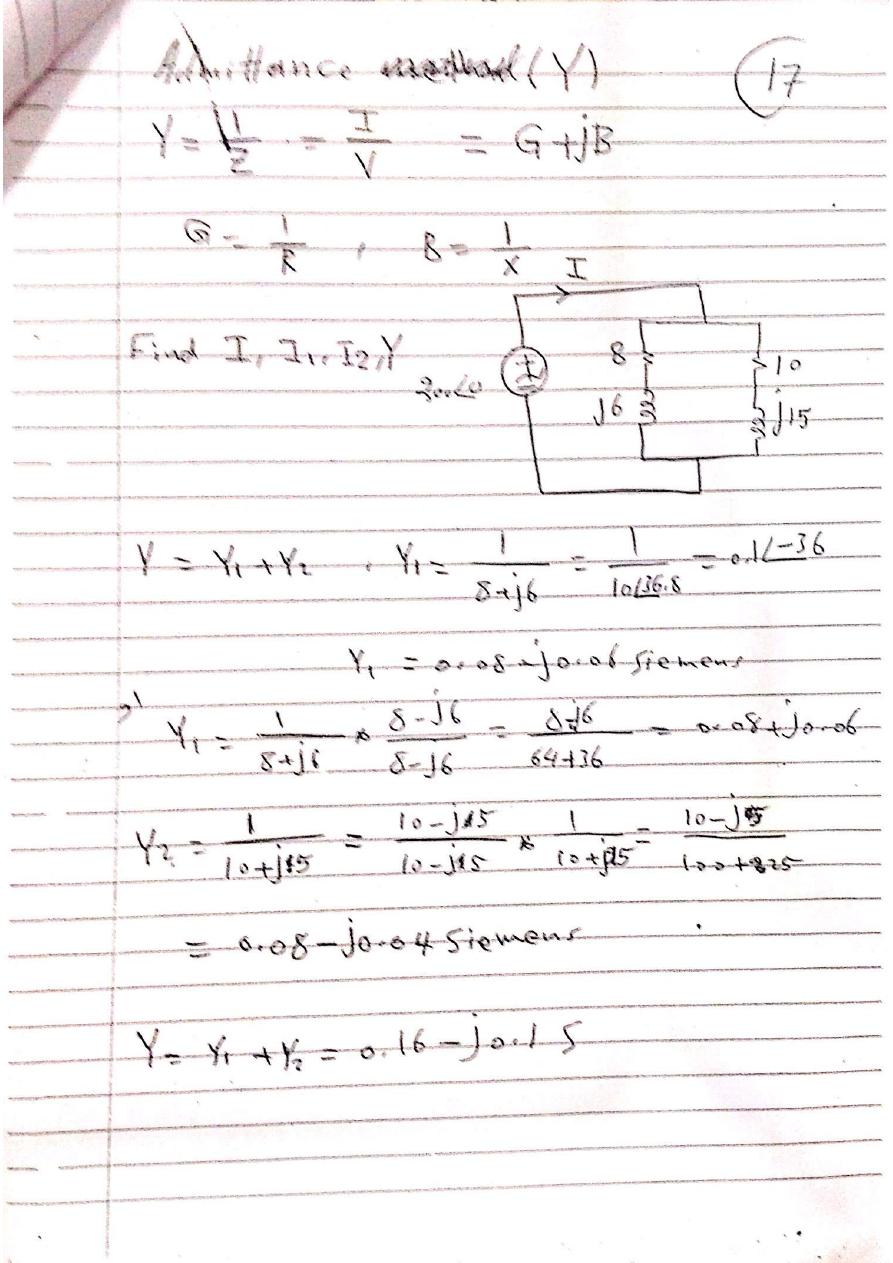 Admittance method (Y)
17
Y = 1/Z = I/V = G+jB
G = 1/R , B = 1/X
I
Find I, I1, I2, Y
200∠0
8
10
j6
j15
Y = Y1 + Y2 , Y1 = 1/(8+j6) = 1/(10∠36.8) = 0.1∠-36
Y1 = 0.08 - j0.06 Siemens
Y1 = 1/(8+j6) * (8-j6)/(8-j6) = (8-j6)/(64+36) = 0.08+j0.06
Y2 = 1/(10+j15) = (10-j15)/(10-j15) * 1/(10+j15) = (10-j5)/(100+225)
= 0.08-j0.04 Siemens
Y = Y1 + Y2 = 0.16-j0.1 S